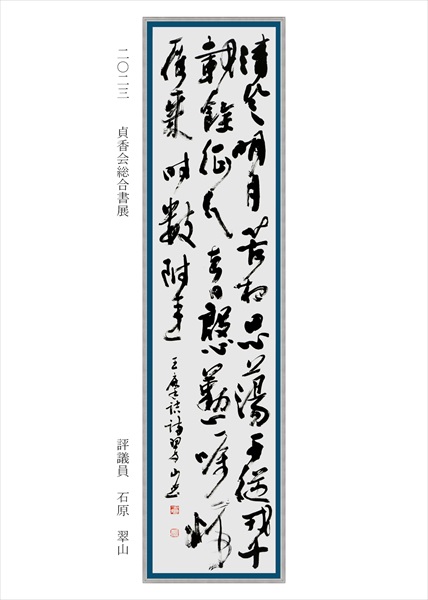 清風明月苦相思蕩子從戎十
載餘征人去日慇懃嘱帰
雁来時數附書 王摩詰詩 翠山書
二〇二三 貞香会総合書展 評議員 石原 翠山